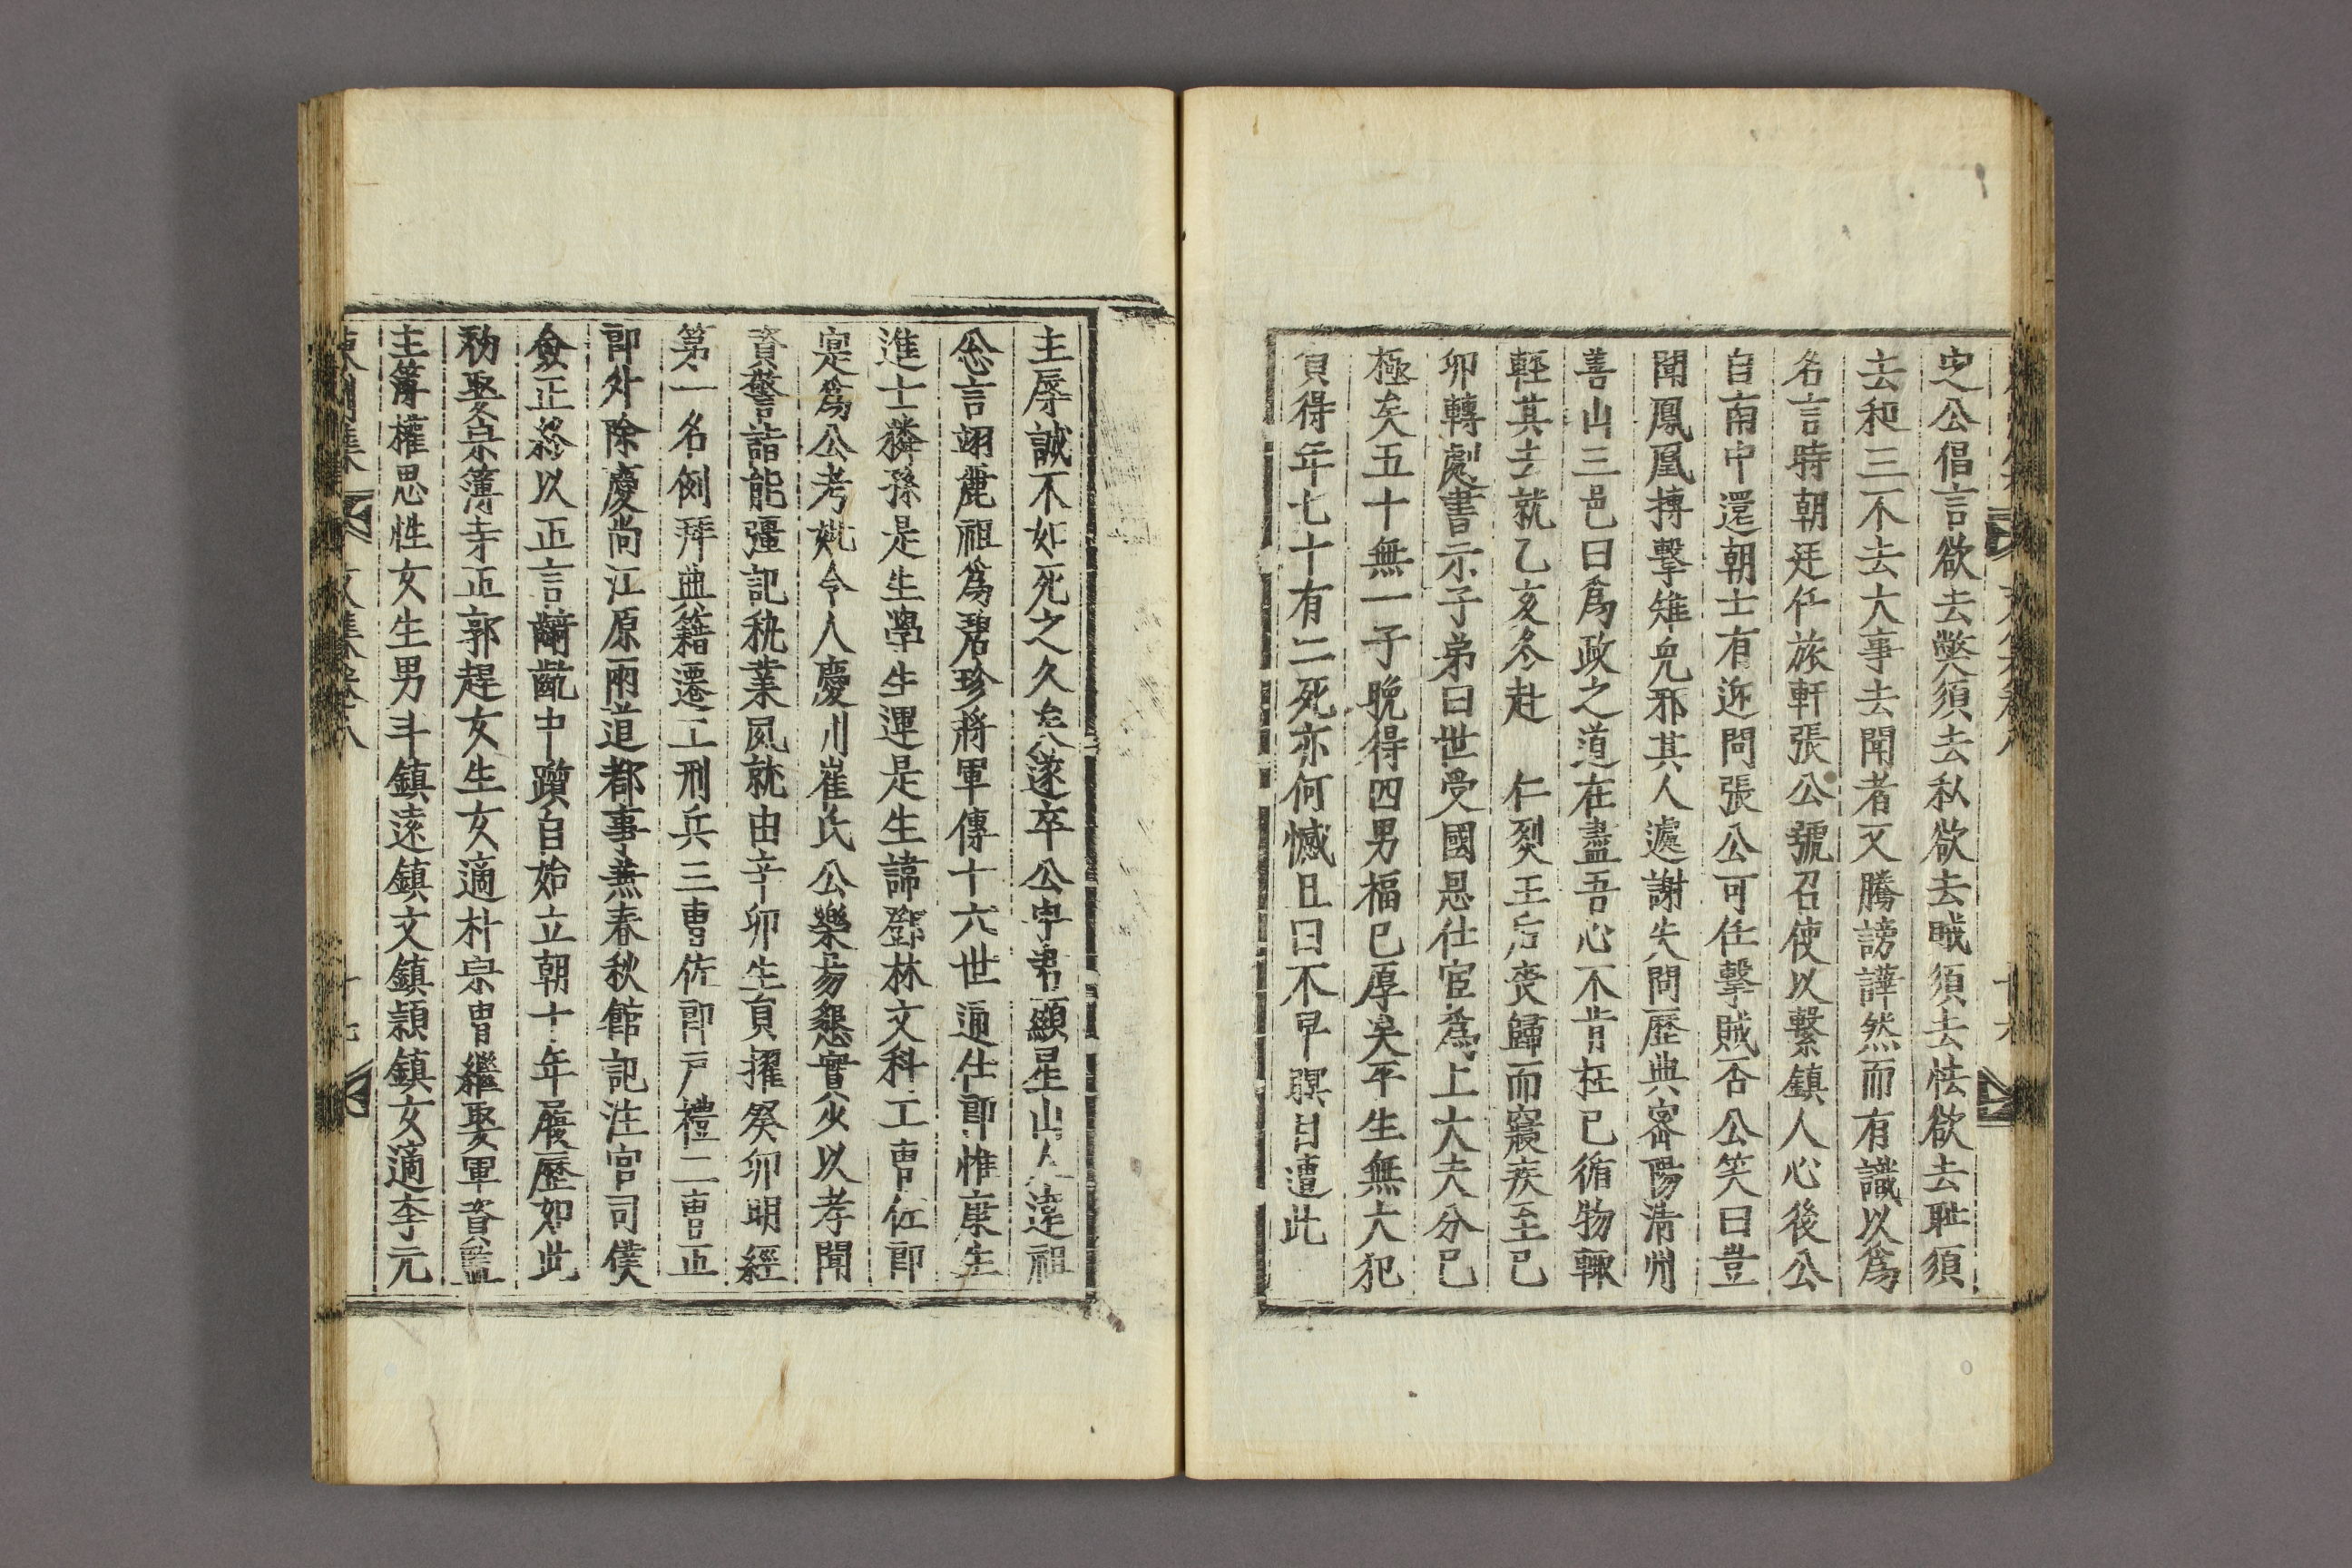 史公倡言欲去弊須去私欲去賊須去怯欲去耻須
去和三不去大事去聞者又騰謗譁然而有識以爲
名言時朝廷任旅軒張公號召使以繫鎭人心後公
自南中還朝士有迎問張公可任擊賊否公笑曰豈
聞鳳凰搏擊雉兎邪其人遽謝失問歷典密陽淸州
善山三邑曰爲政之道在盡吾心不肯枉已循物輒
輕其去就乙亥冬赴 仁烈王后喪歸而寢疾至己
卯轉劇書示子弟曰世受國恩仕宦爲上大夫分已
極矣五十無一子晩得四男福已厚矣平生無大犯
負得年七十有二死亦何憾且曰不早瞑目遭此
主辱誠不如死之久矣遂卒公字君顯星山人遠祖
忩言翊麗祖爲碧珍將軍傳十六世通仕郞惟康生
進士麟孫是生學生運是生諦鄧林文科工曹佐郞
寔爲公考妣令人慶川崔氏公樂易懇實少以孝聞
資警詣能彊記秇業夙就由辛卯生員擢癸卯明經
第一名例拜典籍遷工刑兵三曹佐郞戶禮二曹正
郞外除慶尙江原兩道都事兼春秋館記注官司僕
僉正終以正言齮齕中躓自始立朝十年履歷如此
初娶奈簿寺正郭趕女生女適朴宗胄繼娶軍資監
主簿權思性女生男斗鎭遠鎭文鎭頴鎭女適李元